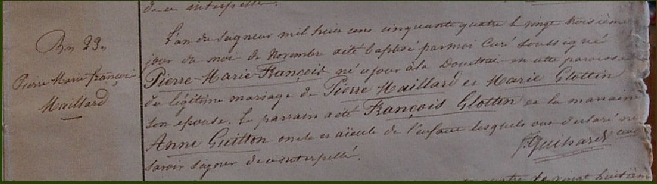 de ce interpellé.
Bn 23n
Pierre Marie françois
Maillard
L'an du Seigneur mil huit cens cinquante quatre le vingt troisième
jour du mois de Novembre a été baptisé par moi Curé soussigné
Pierre Marie François né ce jour à la en cette paroisse
du légitime mariage de Pierre Maillard et Marie Glottin
son épouse. Le parrain a été François Glottin et la marraine
Anne Guitton oncle et aïeule de l'enfant lesquels ont déclaré ne
savoir signer de ce interpellé.
Guihard curé
vingt huitième